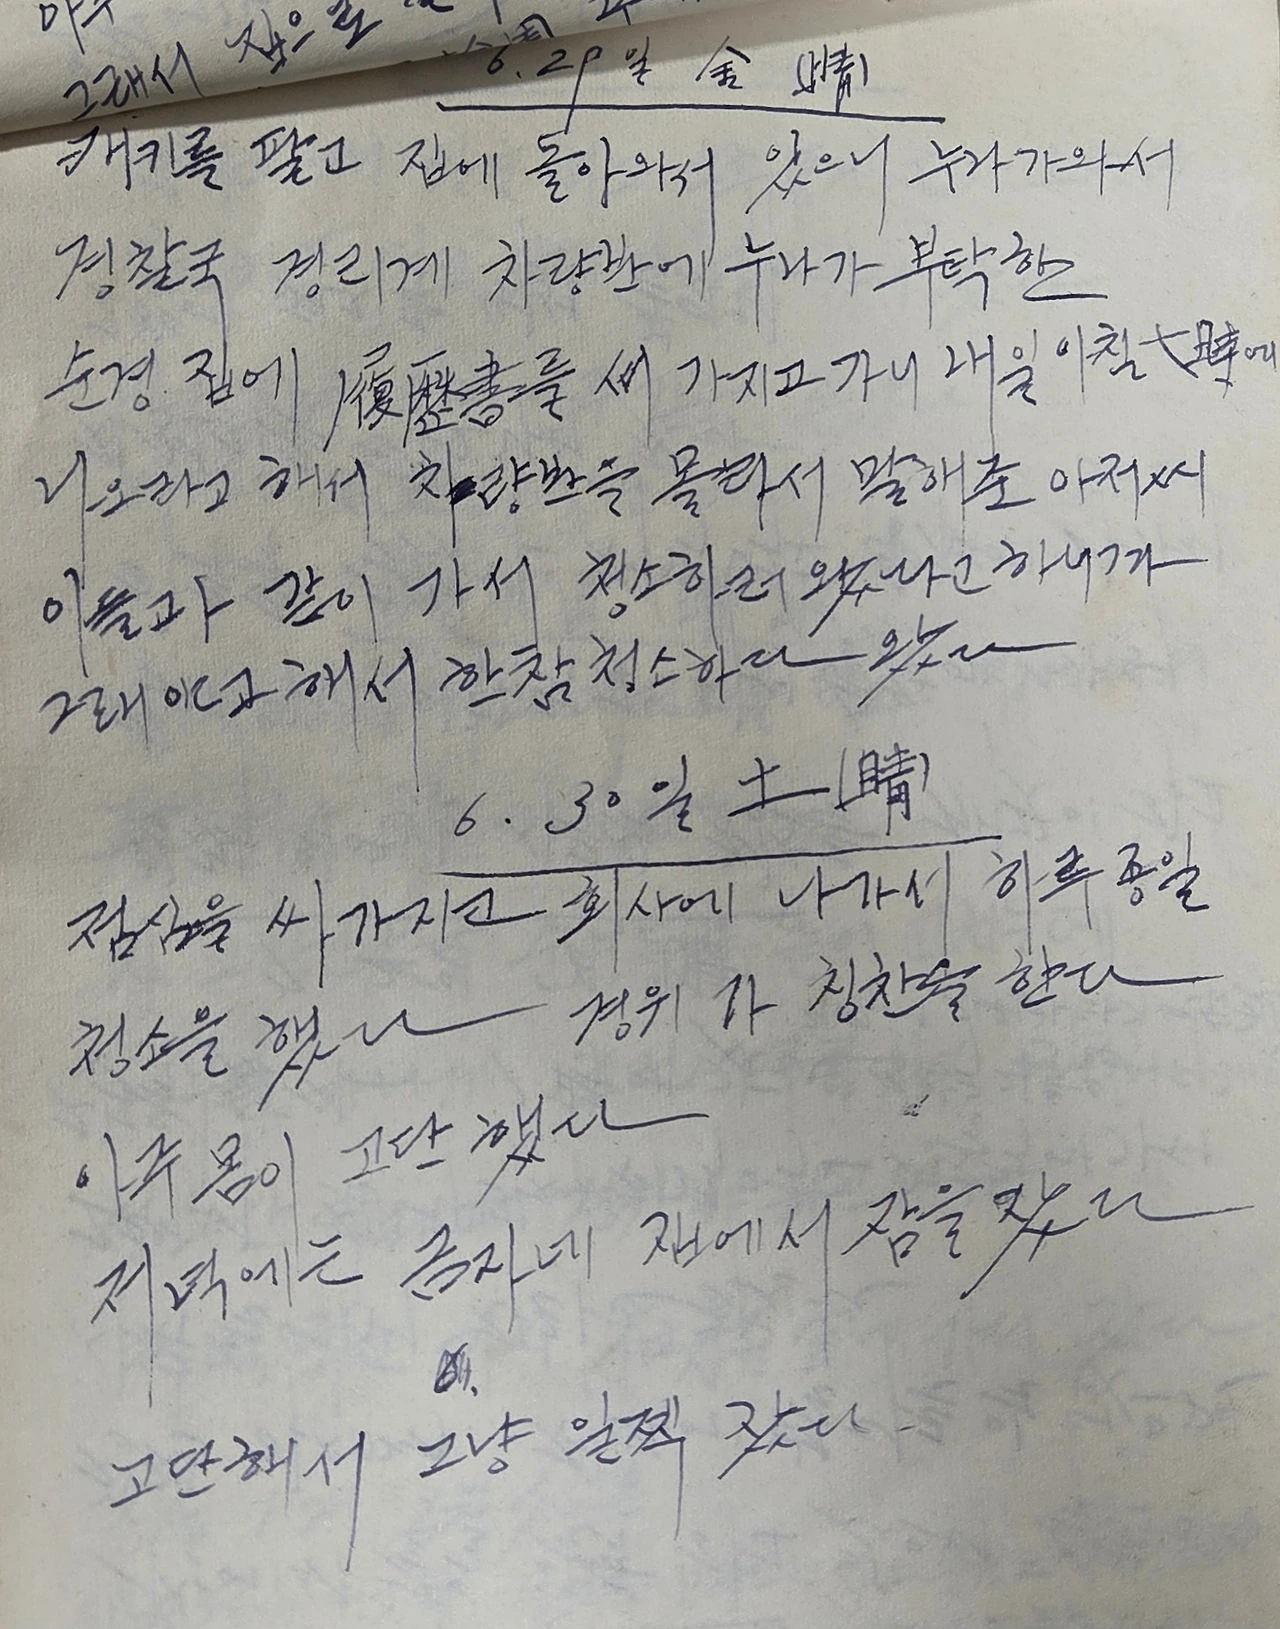 그래서 집으로
6. 29일 金 (晴)
캐키를 팔고 집에 돌아와서 있으니 누나가와서
경찰국 경리계 차량반에 누나가 부탁한
순경 집에 履歷書를 써 가지고가니 내일 아침 七時에
나오라고 해서 차량반을 몰라서 말해준 아저씨
이들과 같이 가서 청소하러 왔다고하니까
그래야고 해서 한참 청소하다 왔다
6. 30일 土 (晴)
점심을 싸가지고 회사에 나가서 하루종일
청소을 했다 경위가 칭찬을 한다
아주 몸이 고단했다
저녁에는 금자네 집에서 잠을 잤다
고단해서 그냥 일찍 잤다.